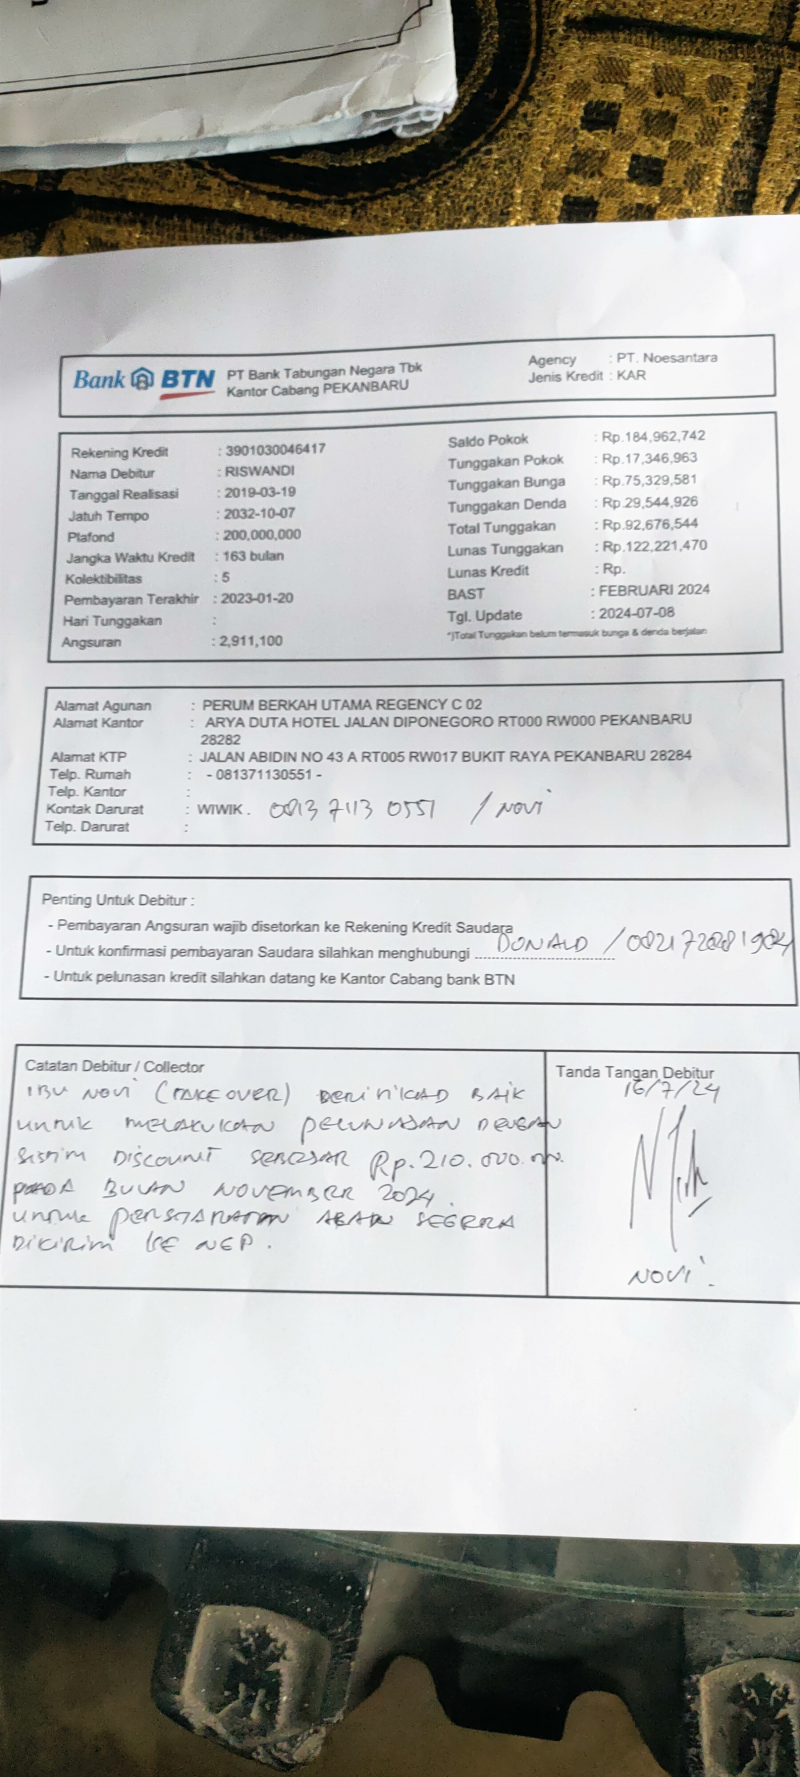 Bank BTN PT Bank Tabungan Negara Tbk
Kantor Cabang PEKANBARU
Agency : PT. Noesantara
Jenis Kredit : KAR
Rekening Kredit : 3901030046417
Nama Debitur : RISWANDI
Tanggal Realisasi : 2019-03-19
Jatuh Tempo : 2032-10-07
Plafond : 200,000,000
Jangka Waktu Kredit : 163 bulan
Kolektibilitas : 5
Pembayaran Terakhir : 2023-01-20
Hari Tunggakan :
Angsuran : 2,911,100
Saldo Pokok : Rp.184,962,742
Tunggakan Pokok : Rp.17,346,963
Tunggakan Bunga : Rp.75,329,581
Tunggakan Denda : Rp.29,544,926
Total Tunggakan : Rp.92,676,544
Lunas Tunggakan : Rp.122,221,470
Lunas Kredit : Rp.
BAST : FEBRUARI 2024
Tgl. Update : 2024-07-08
*)Total Tunggakan belum termasuk bunga & denda berjalan
Alamat Agunan : PERUM BERKAH UTAMA REGENCY C 02
Alamat Kantor : ARYA DUTA HOTEL JALAN DIPONEGORO RT000 RW000 PEKANBARU
28282
Alamat KTP : JALAN ABIDIN NO 43 A RT005 RW017 BUKIT RAYA PEKANBARU 28284
Telp. Rumah : - 081371130551 -
Telp. Kantor :
Kontak Darurat : WIWIK. 0813 7113 0551 / NOVI
Telp. Darurat :
Penting Untuk Debitur :
- Pembayaran Angsuran wajib disetorkan ke Rekening Kredit Saudara
- Untuk konfirmasi pembayaran Saudara silahkan menghubungi DONALD / 082172081904
- Untuk pelunasan kredit silahkan datang ke Kantor Cabang bank BTN
Catatan Debitur / Collector
IBU NOVI (TAKE OVER) BERITIKAD BAIK
UNTUK MELAKUKAN PELUNASAN DENGAN
SISTIM DISCOUNT SEBESAR Rp. 210.000.000.
PADA BULAN NOVEMBER 2024.
UNTUK PERSYARATAN AKAN SEGERA
DIKIRIM KE NEP.
Tanda Tangan Debitur
16/7/24
NOVI.